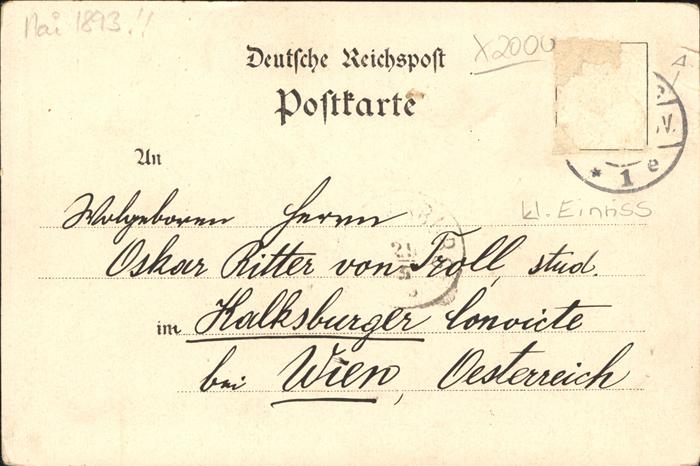 Mai 1893.!!
X2000
Deutsche Reichspost
Postkarte
An
* 1 e
kl. Einriss
Wolgeboren Herrn
Oskar Ritter von Troll, stud.
im Kalksburger Convicte
bei Wien, Oesterreich